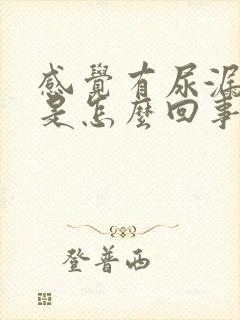 感覺有尿漏
是怎麼回事
登普西